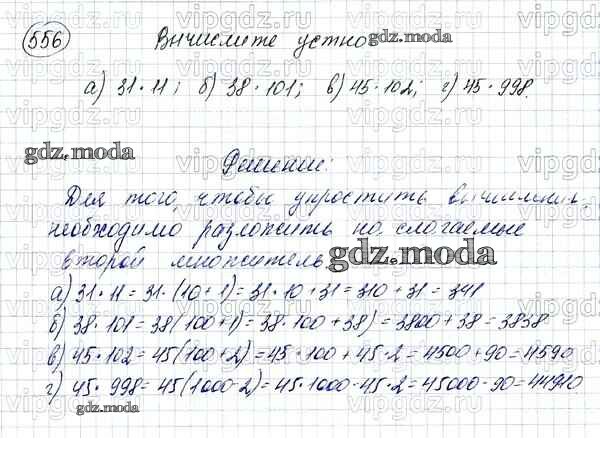 556 Вычислите устно gdz.moda
а) 31·11; б) 38·101; в) 45·102; г) 45·998.
gdz.moda
Решение:
Для того, чтобы упростить
необходимо разложить на слагаемые
второй множитель. gdz.moda
а) 31·11 = 31·(10+1) = 31·10+31 = 310+31 = 341
б) 38·101 = 38(100+1) = 38·100+38) = 3800+38 = 3838
в) 45·102 = 45(100+2) = 45·100+45·2 = 4500+90 = 4590
г) 45·998 = 45(1000-2) = 45·1000-45·2 = 45000-90 = 44910.
gdz.moda